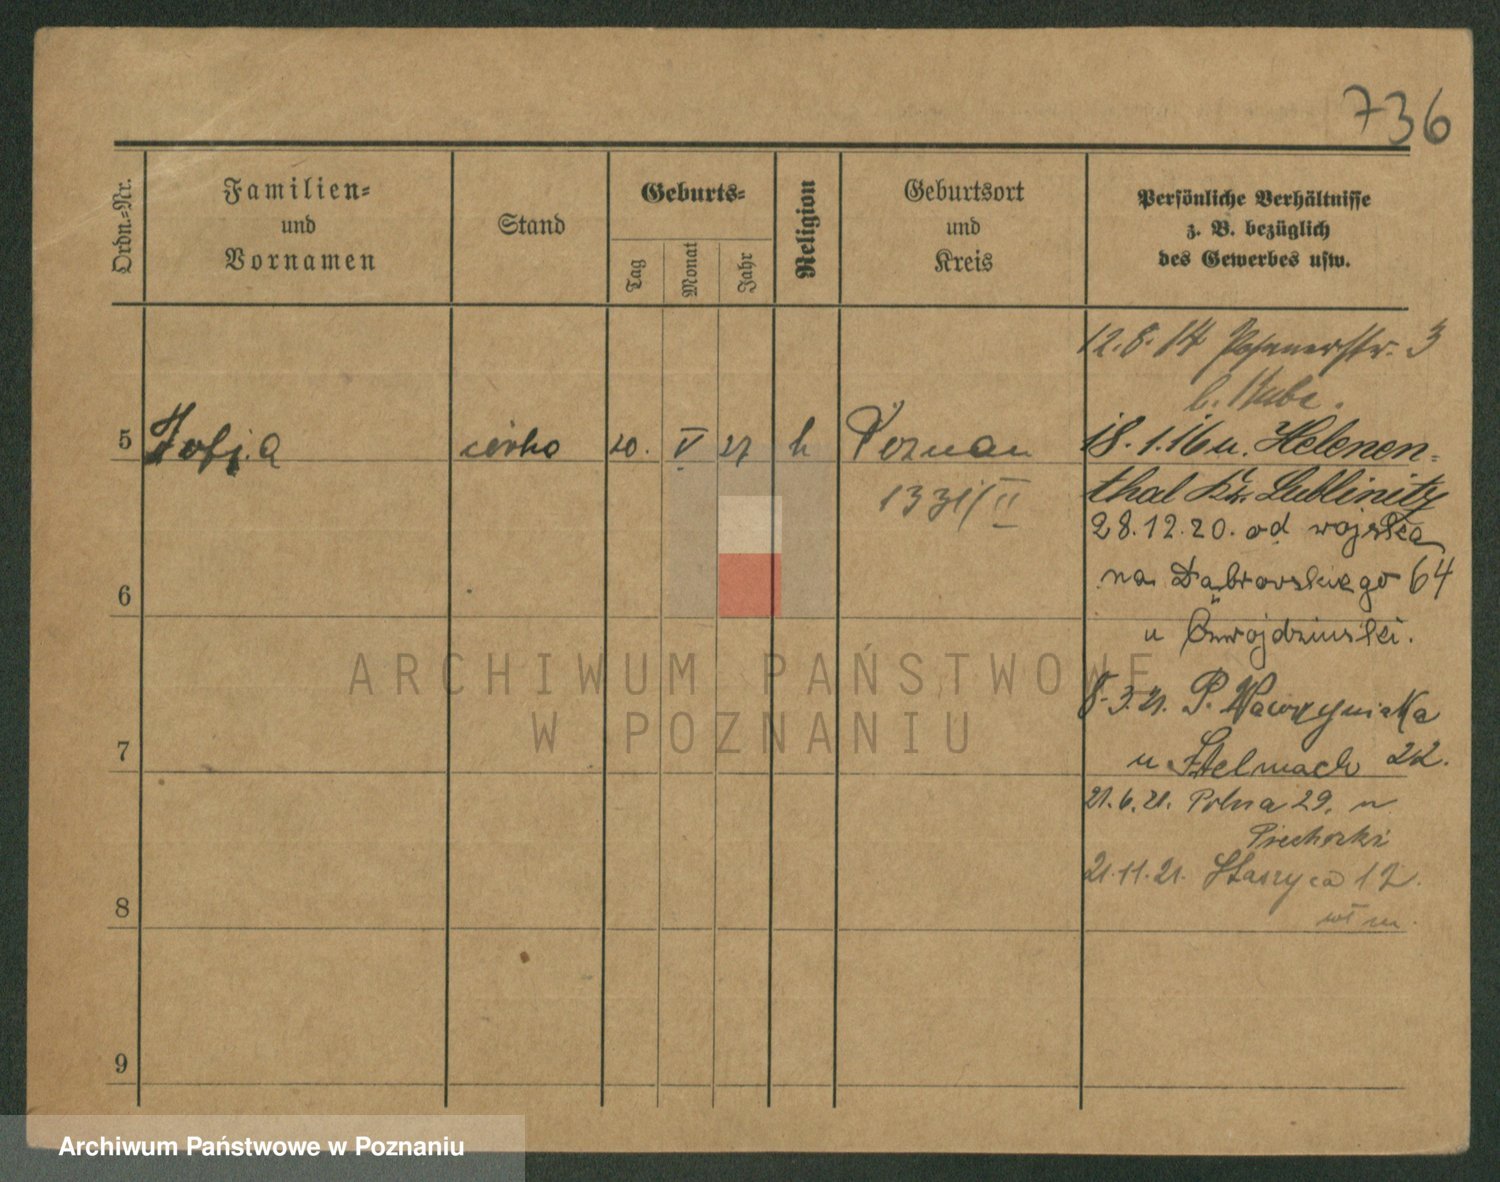 736
Ordn.-Nr.
Familien-
und
Vornamen
Stand
Geburts-
Tag
Monat
Jahr
Religion
Geburtsort
und
Kreis
Persönliche Verhältnisse
z. B. bezüglich
des Gewerbes usw.
12.8.14 Posenerstr. 3
b. Kube.
5 Zofja córka 20. V 27 k Poznan
18.1.16 n. Helenen-
1331/II
thal Kr. Lublinitz
28.12.20. od wojska
6
na Dąbrowskiego 64
u
8.3.21. P. Wawrzyniaka
7
u Stelmach 22.
21.6.21. Polna 29. u
Piechocki
21.11.21. Staszyca 12.
8
9
ARCHIWUM PAŃSTWOWE
W POZNANIU
Archiwum Państwowe w Poznaniu